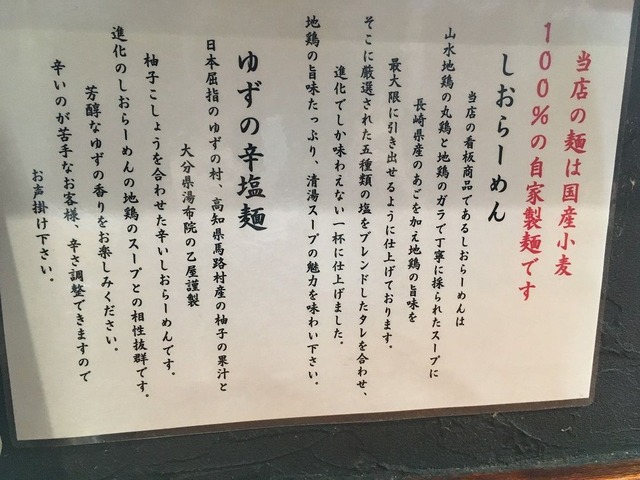 当店の麺は国産小麦
100%の自家製麺です
しおらーめん
当店の看板商品であるしおらーめんは
山水地鶏の丸鶏と地鶏のガラで丁寧に採られたスープに
長崎県産のあごを加え地鶏の旨味を
最大限に引き出せるように仕上げております。
そこに厳選された五種類の塩をブレンドしたタレを合わせ、
進化でしか味わえない一杯に仕上げました。
地鶏の旨味たっぷり、清湯スープの魅力を味わい下さい。
ゆずの辛塩麺
日本屈指のゆずの村、高知県馬路村産の柚子の果汁と
大分県湯布院の乙屋謹製
柚子こしょうを合わせた辛いしおらーめんです。
進化のしおらーめんの地鶏のスープとの相性抜群です。
芳醇なゆずの香りをお楽しみください。
辛いのが苦手なお客様、辛さ調整できますので
お声掛け下さい。